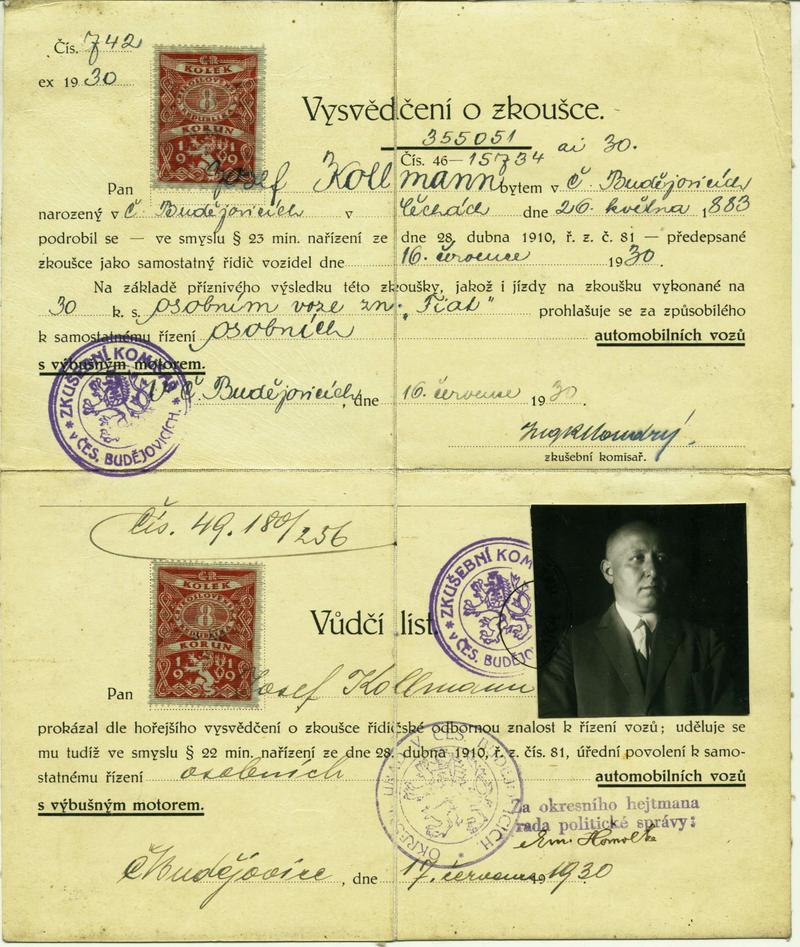 Čís. 742
ex 1930
ČR
KOLEK
8
KORUN
1919
Vysvědčení o zkoušce.
355051
Čís. 46—15734 ai 30.
Pan Josef Kollmann bytem v Č. Budějovicích
narozený v Č. Budějovicích v Čechách dne 26. května 1883
podrobil se — ve smyslu § 23 min. nařízení ze dne 28. dubna 1910, ř. z. č. 81 — předepsané
zkoušce jako samostatný řidič vozidel dne 16. července 1930.
Na základě příznivého výsledku této zkoušky, jakož i jízdy na zkoušku vykonané na
30 k. s. osobním voze zn. „Fiat" prohlašuje se za způsobilého
k samostatnému řízení osobních automobilních vozů
s výbušným motorem.
V Č. Budějovicích, dne 16. července 1930.
ZKUŠEBNÍ KOMISAŘ
v ČES. BUDĚJOVICÍCH.
zkušební komisař.
Čís. 49.180/256
ČR
KOLEK
8
KORUN
1919
ZKUŠEBNÍ KOM
v ČES. BUDĚJO
Vůdčí list.
Pan Josef Kollmann
prokázal dle hořejšího vysvědčení o zkoušce řidičské odbornou znalost k řízení vozů; uděluje se
mu tudíž ve smyslu § 22 min. nařízení ze dne 28. dubna 1910, ř. z. čís. 81, úřední povolení k samo-
statnému řízení osobních automobilních vozů
s výbušným motorem.
Za okresního hejtmana
rada politické správy:
Č Budějovice, dne 17. července 1930